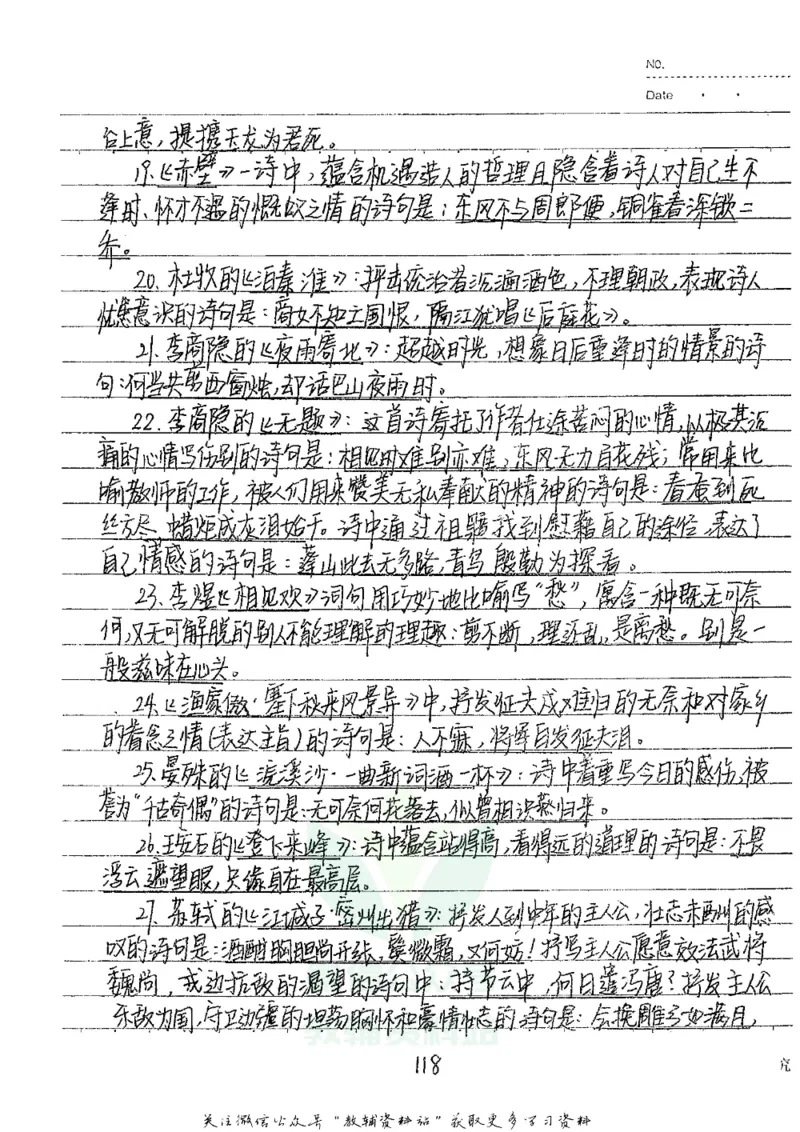 NO.
Date
台上意，提携玉龙为君死。
19.《赤壁》一诗中，蕴含机遇造人的哲理且隐含着诗人对自己生不
逢时、怀才不遇的慨叹之情的诗句是：东风不与周郎便，铜雀春深锁二
乔。
20.杜牧的《泊秦淮》：抨击统治者沉湎酒色，不理朝政，表现诗人
忧患意识的诗句是：商女不知亡国恨，隔江犹唱《后庭花》。
21.李商隐的《夜雨寄北》：超越时光，想象日后重逢时的情景的诗
句：何当共剪西窗烛，却话巴山夜雨时。
22.李商隐的《无题》：这首诗寄托了作者仕途苦闷的心情，以极其沉
痛的心情写伤别的诗句是：相见时难别亦难，东风无力百花残；常用来比
喻教师的工作，被人们用来赞美无私奉献的精神的诗句是：春蚕到死
丝方尽，蜡炬成灰泪始干。诗中通过祖题找到慰藉自己的途径，表达了
自己情感的诗句是：蓬山此去无多路，青鸟殷勤为探看。
23.李煜《相见欢》词句用巧妙地比喻写“愁”，寓含一种既无可奈
何，又无可解脱的别人不能理解的理趣：剪不断，理还乱，是离愁。别是一
般滋味在心头。
24.《渔家傲·塞下秋来风景异》中，抒发征夫戍难归的无奈和对家乡
的眷念之情(表达主旨)的诗句是：人不寐，将军白发征夫泪。
25.晏殊的《浣溪沙·一曲新词酒一杯》：诗中着重写今日的感伤，被
誉为“千古奇偶”的诗句是：无可奈何花落去，似曾相识燕归来。
26.王安石的《登飞来峰》：诗中蕴含站得高，看得远的道理的诗句是：不畏
浮云遮望眼，只缘身在最高层。
27.苏轼的《江城子·密州出猎》：抒发人到中年的主人公，壮志未酬的感
叹的诗句是：酒酣胸胆尚开张，鬓微霜，又何妨！抒写主人公愿意效法武将
魏尚，戎边抗敌的渴望的诗句中：持节云中，何日遣冯唐？抒发主人公
杀敌为国，守卫边疆的坦荡胸怀和豪情壮志的诗句是：会挽雕弓如满月，
118
关注微信公众号“教辅资料站”获取更多学习资料